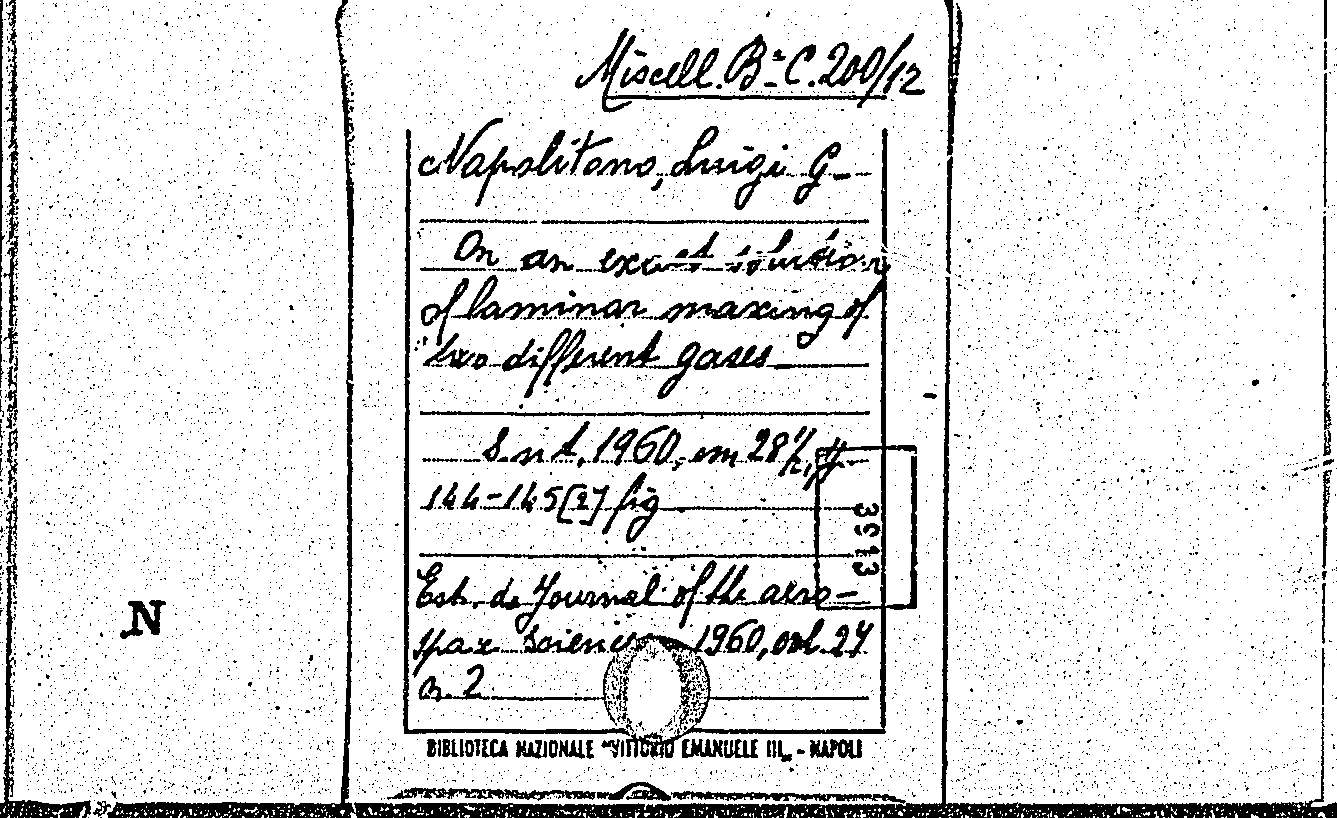 Miscell. Bᵃ C. 200/12
Napolitano, Luigi G.
On an exact solution
of laminar maxing of
two different gases
S. n t., 1960, cm 28½, pp.
144-145 [2] fig
3913
Estr. da Journal of the aero-
spaz Science 1960, vol. 27
n. 2
N
BIBLIOTECA NAZIONALE "VITTORIO EMANUELE III„ - NAPOLI